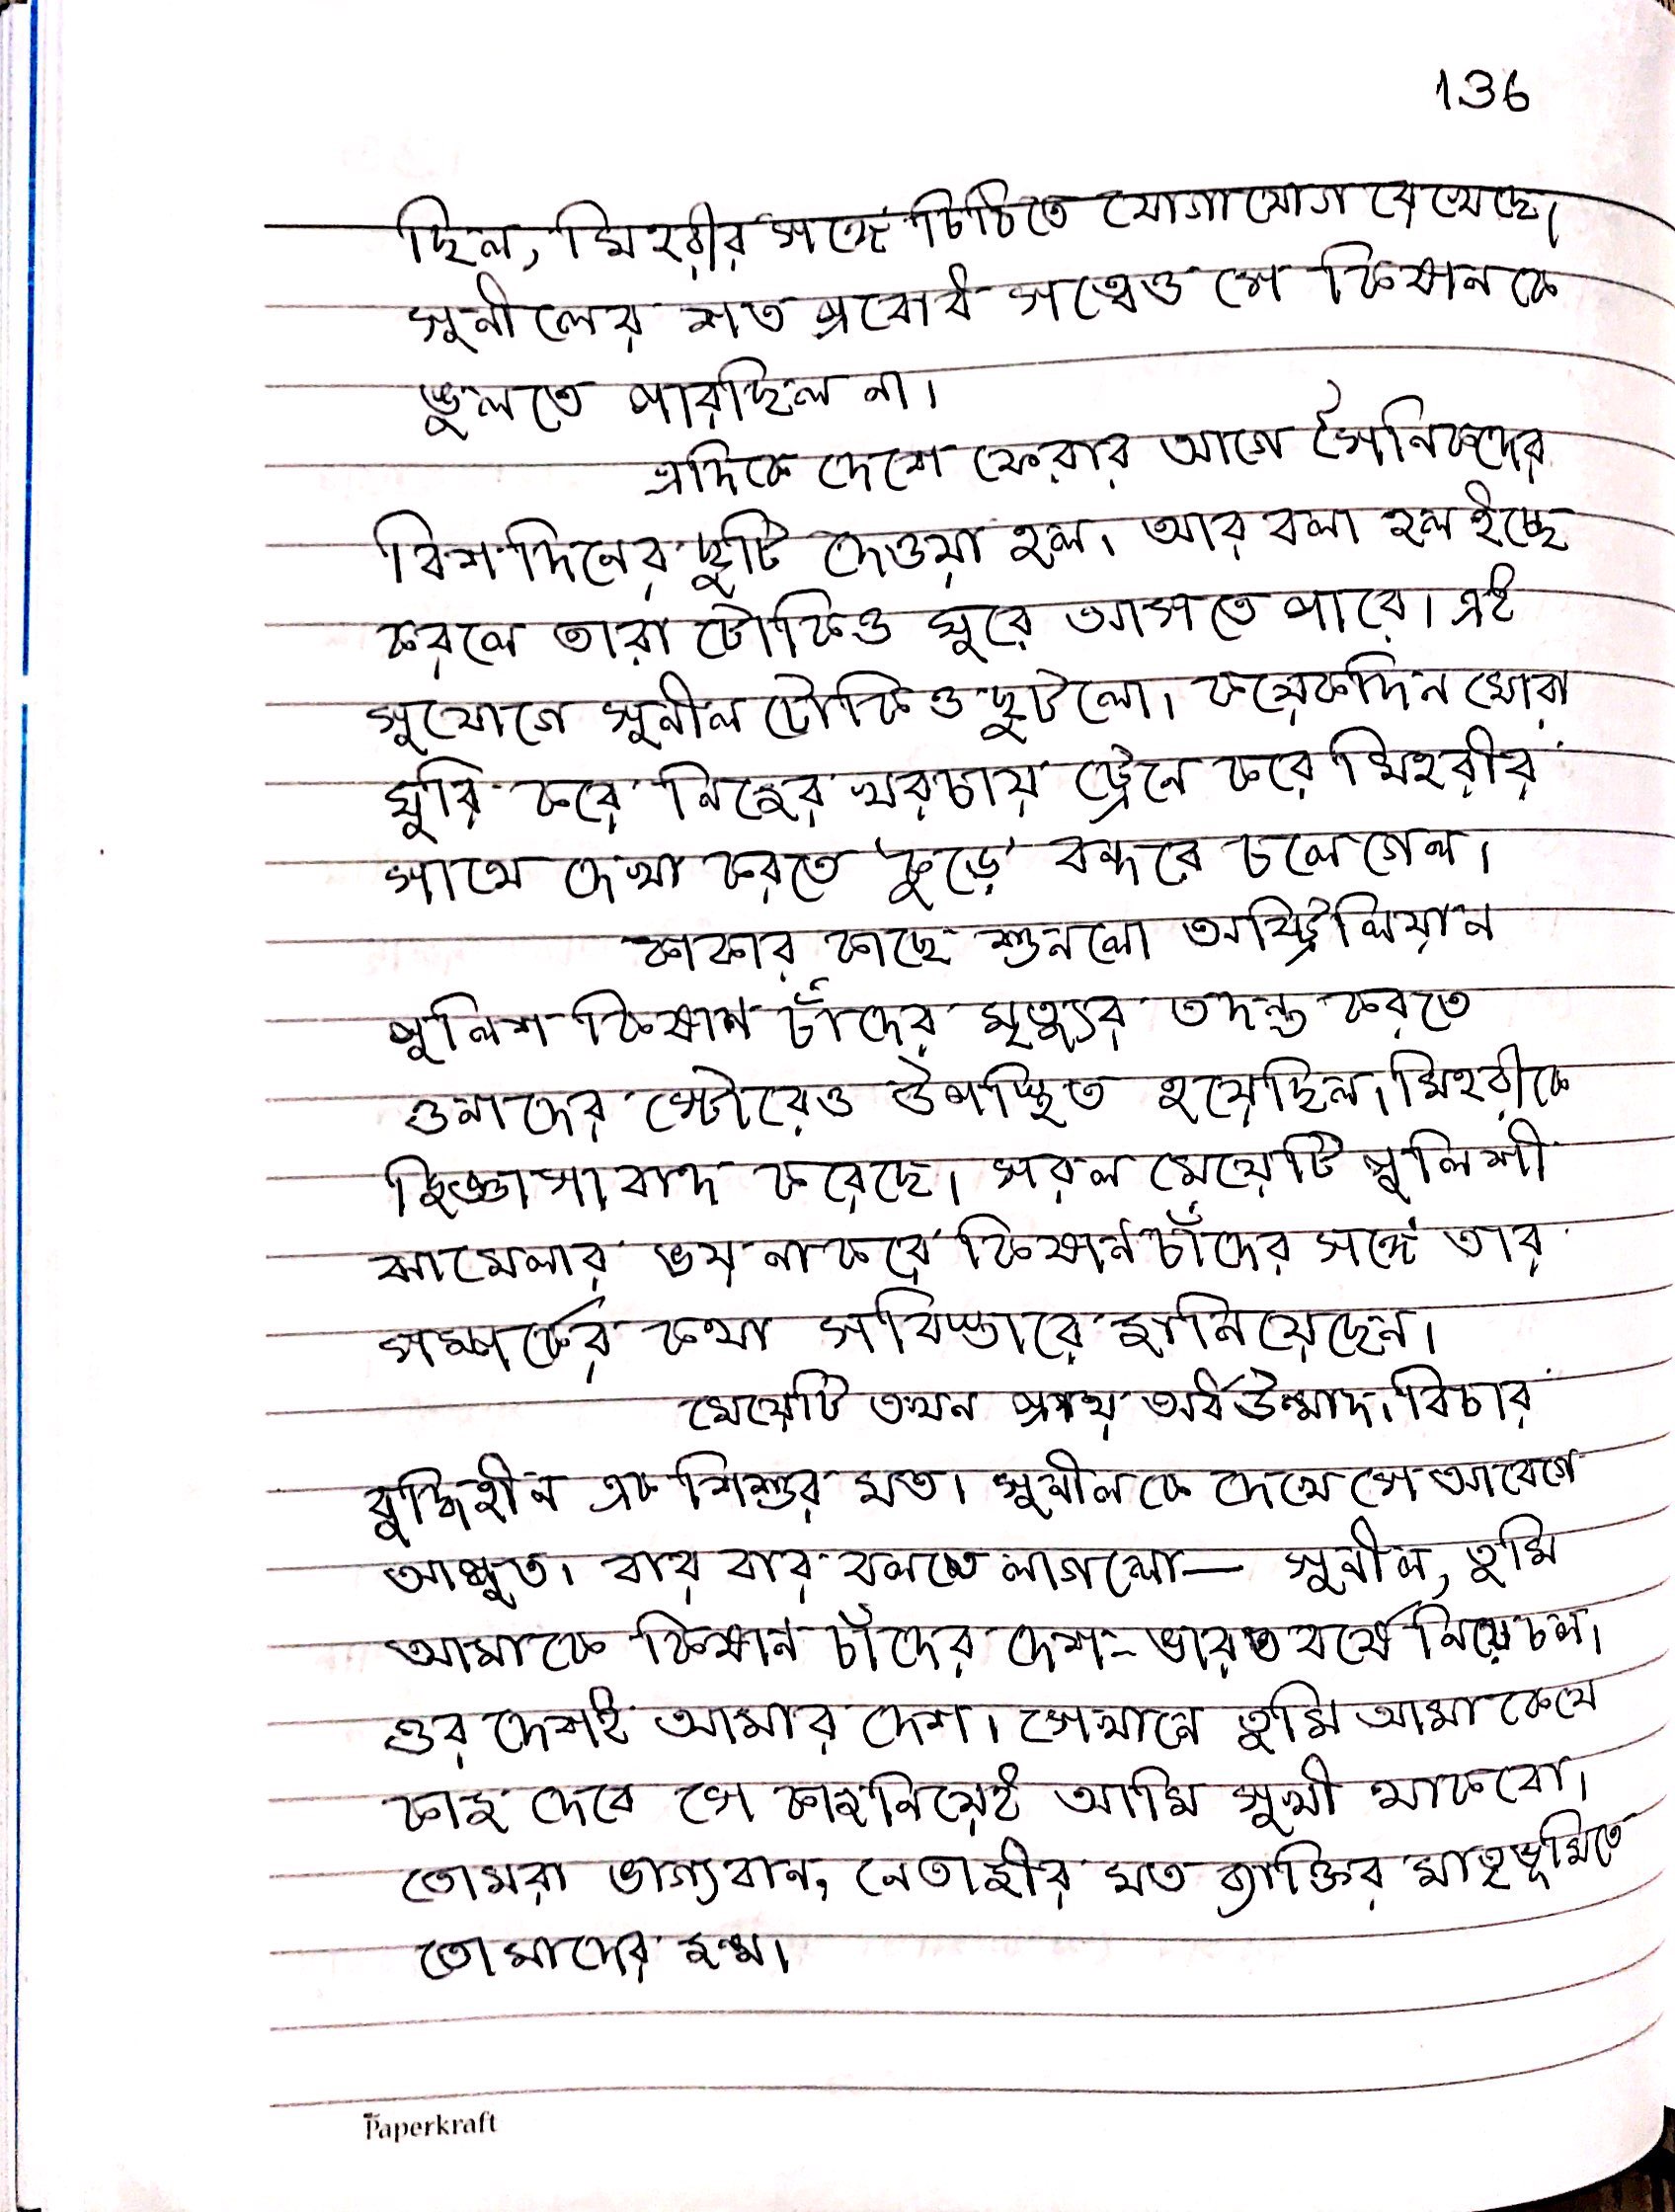 136
ছিল, মিহরীর সঙ্গে চিঠিতে যোগাযোগ রেখেছে।
সুনীলের শত প্রবোধ সত্বেও সে কিষানকে
ভুলতে পারছিল না।
এদিকে দেশে ফেরার আগে সৈনিকদের
বিশ দিনের ছুটি দেওয়া হল। আর বলা হল ইচ্ছে
করলে তারা টোকিও ঘুরে আসতে পারে। এই
সুযোগে সুনীল টোকিও ছুটলো। কয়েকদিন ঘোরা
ঘুরি করে নিজের খরচায় ট্রেনে করে মিহরীর
সাথে দেখা করতে 'কুড়ে' বন্দরে চলে গেল।
কাকার কাছে শুনলো অস্ট্রেলিয়ান
পুলিশ কিষান চাঁদের মৃত্যুর তদন্ত করতে
ওনাদের স্টোরেও উপস্থিত হয়েছিল। মিহরীকে
জিজ্ঞাসাবাদ করেছে। সরল মেয়েটি পুলিশী
ঝামেলার ভয় না করে কিষান চাঁদের সঙ্গে তার
সম্পর্কের কথা সবিস্তারে জানিয়েছেন।
মেয়েটি তখন প্রায় অর্ধউন্মাদ। বিচার
বুদ্ধিহীন এক শিশুর মত। সুনীলকে দেখে সে আবেগে
আপ্লুত। বার বার বলতে লাগলো— সুনীল, তুমি
আমাকে কিষান চাঁদের দেশ-ভারতবর্ষে নিয়ে চল।
ওর দেশই আমার দেশ। সেখানে তুমি আমাকে যে
কাজ দেবে সে কাজ নিয়েই আমি সুখী থাকবো।
তোমরা ভাগ্যবান, নেতাজীর মত ব্যাক্তির মাতৃভূমিতে
তোমাদের জন্ম।
Paperkraft